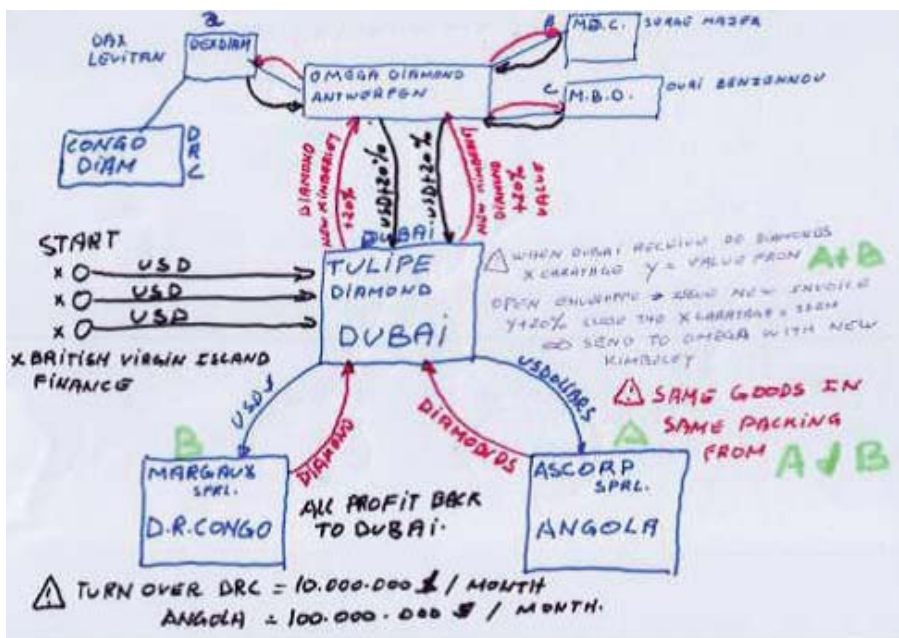 a
DAX
LEVITAN
DEXDIAM
OMEGA DIAMOND
ANTWERPEN
B
M.B.C.
SERGE MAJER
C
M.B.D.
OURI BENZENNOU
CONGO
DIAM
DRC
DIAMOND
NEW KIMBERLEY
+20%
USD+20%
USD+20%
NEW
DIAMOND
+20%
VALUE
START
x USD
x USD
x USD
x BRITISH VIRGIN ISLAND
FINANCE
DUBAI
TULIPE
DIAMOND
DUBAI
WHEN DUBAI RECEIVE DD DIAMONDS
X CARATAGE Y = VALUE FROM A+B
OPEN ISSUE NEW INVOICE
Y+20% THE X CARATAGE =
SEND TO OMEGA WITH NEW
KIMBERLEY
SAME GOODS IN
SAME PACKING
FROM A & B
USD $
DIAMOND
DIAMONDS
USDOLLARS
B
MARGAUX
SPRL.
D.R.CONGO
ALL PROFIT BACK
TO DUBAI.
A
ASCORP
SPRL.
ANGOLA
TURN OVER DRC = 10.000.000 $ / MONTH
ANGOLA = 100.000.000 $ / MONTH.